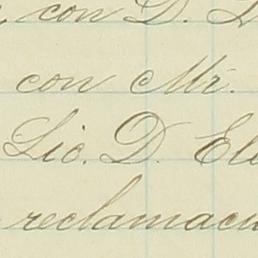 con D.
con Mr.
Lic. D. Ele
reclamaci